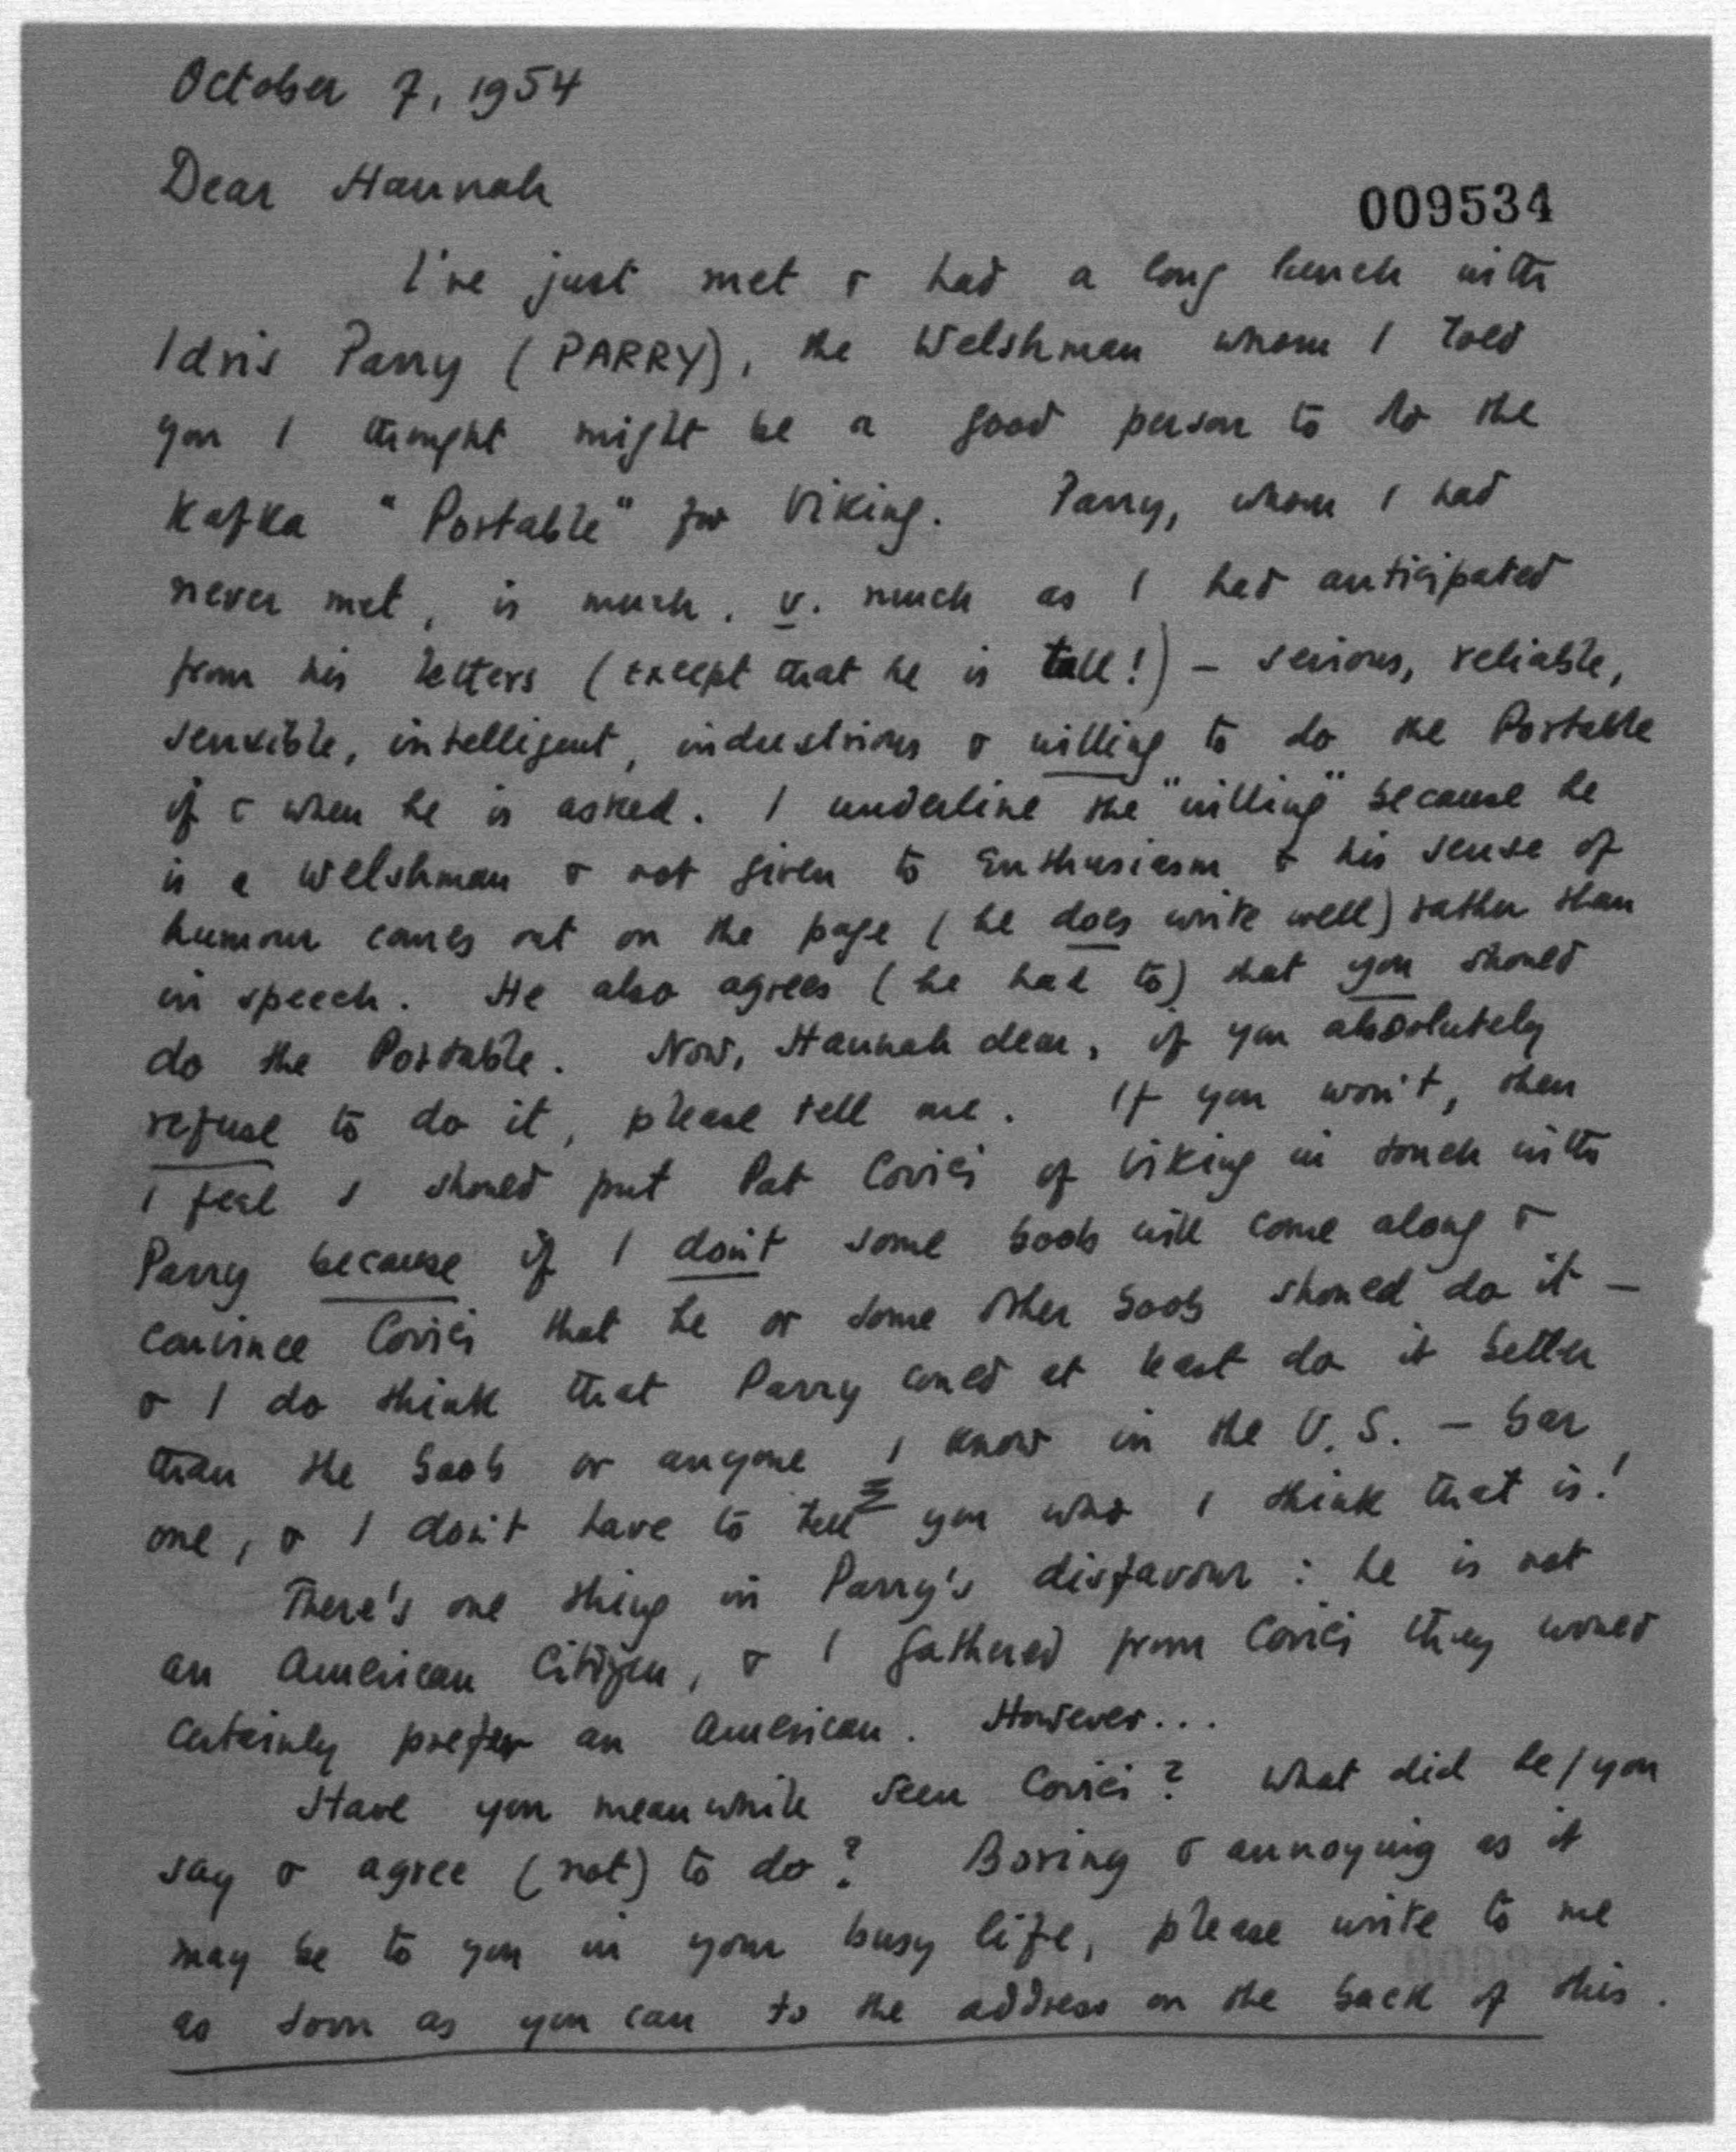 October 7, 1954
Dear Hannah
009534
I've just met & had a long lunch with
Idris Parry (PARRY), the Welshman whom I told
you I thought might be a good person to do the
Kafka "Portable" for Viking. Parry, whom I had
never met, is much, v. much as I had anticipated
from his letters (except that he is tall!) – serious, reliable,
sensible, intelligent, industrious & willing to do the Portable
if & when he is asked. I underline the "willing" because he
is a Welshman & not given to Enthusiasm & his sense of
humour comes out on the page (he does write well) rather than
in speech. He also agrees (he had to) that you should
do the Portable. Now, Hannah dear, if you absolutely
refuse to do it, please tell me. If you won't, then
I feel I should put Pat Covici of Viking in touch with
Parry because if I don't some boob will come along &
convince Covici that he or some other boob should do it –
& I do think that Parry could at least do it better
than the boob or anyone I know in the U.S. – bar
one, & I don't have to tell you who I think that is!
There's one thing in Parry's disfavour: he is not
an American Citizen, & I gathered from Covici they would
certainly prefer an American. However...
Have you meanwhile seen Covici? What did he/you
say & agree (not) to do? Boring & annoying as it
may be to you in your busy life, please write to me
as soon as you can to the address on the back of this.